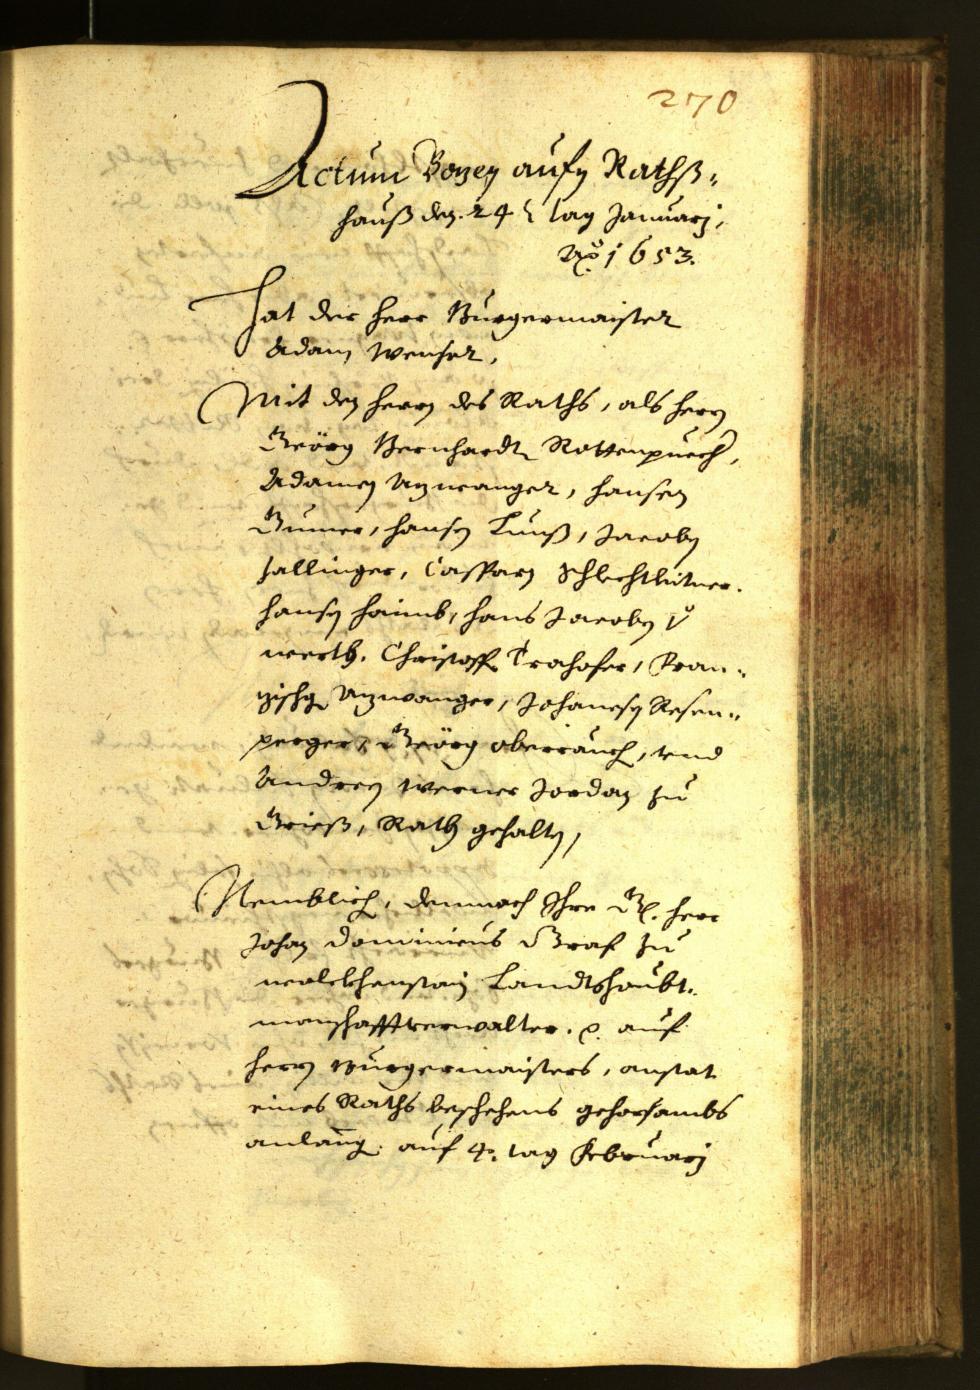 270
Actum Bozen aufm Rathß-
hauß den 24 tag Januarj,
Ao 1653.
Hat der Herr Burgermaister
Adam Wenser,
Mit den Herrn des Raths, als Herrn
Geörg Bernhardt Rottenpuech,
Adamen Anzwanger, Hansen
Gumer, Hansen Lunß, Jacoben
Zallinger, Casparn Schlechtleitner.
Hansen Haimb, Hans Jacoben v
werth. Christoff Trahofer, Fran-
zischg Anzwanger, Johanesen Resen-
perger, Geörg Oberrauch, vnd
Andreen Werner Jordan zu
Grieß, Rath gehalten,
Nemblich, demnach Ihre G. Herr
Johan Dominicus Graf zu
wolckhenstain Landtshaubt-
manschafftverwalter. auf
Herrn Burgermaisters, anstat
eines Raths beschehens gehorsambs
anlang. auf 4. tag Februarj